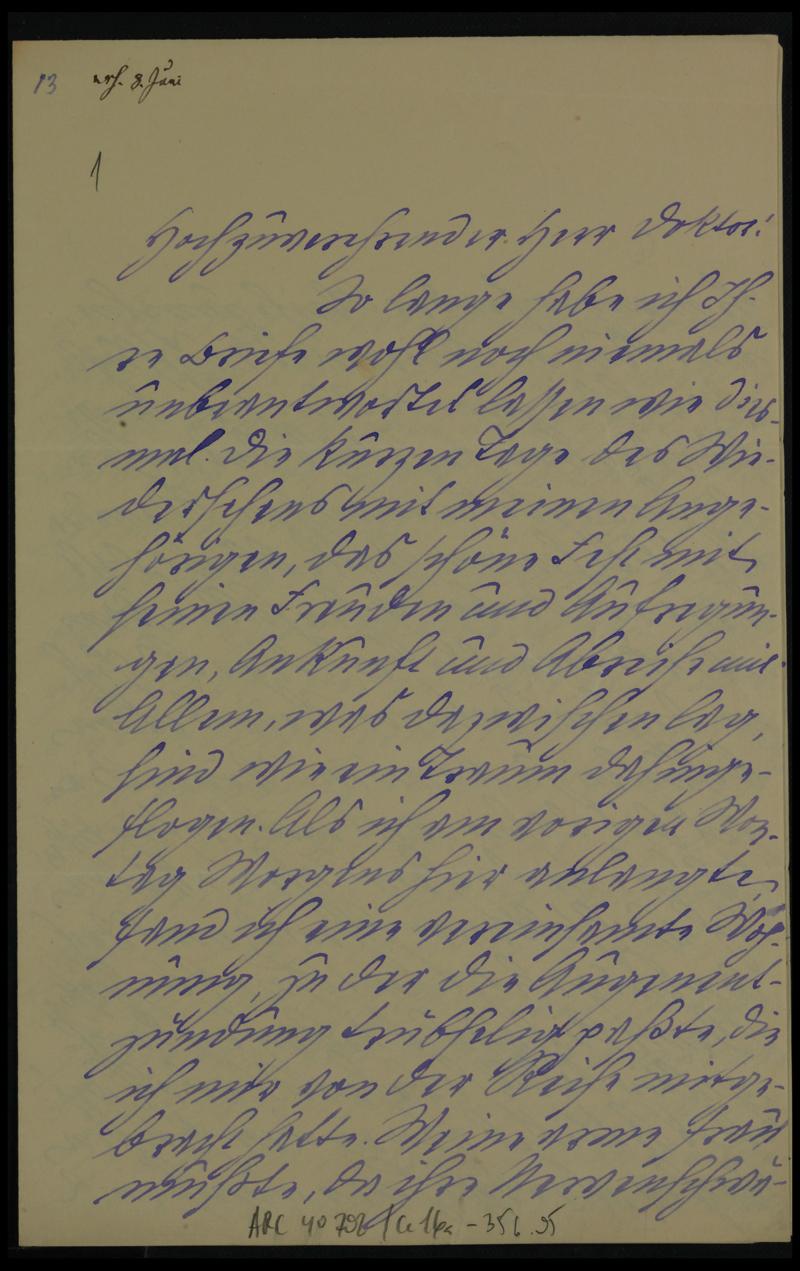 13 erh. 8. Juni
1
Hochzuverehrender Herr Doktor!
So lange habe ich Ih-
re Briefe wohl noch niemals
unbeantwortet lassen wie dies-
mal. Die kurzen Tage des Wie-
dersehens mit meinen Ange-
hörigen, das schöne Fest mit
seinen Freuden und Aufregun-
gen, Ankunft und Abreise mit
Allem, was dazwischen lag,
sind wie ein Traum dahinge-
flogen. Als ich am vorigen Mon-
tag Morgens hier anlangte,
fand ich eine vereinsamte Woh-
nung, zu der die Augenent-
zündung trübselig paßte, die
ich mir von der Reise mitge-
bracht hatte. Meine arme Frau
mußte, da ihre Nervenschwä-
ARC 40 792 / Ce 16a - 356.95